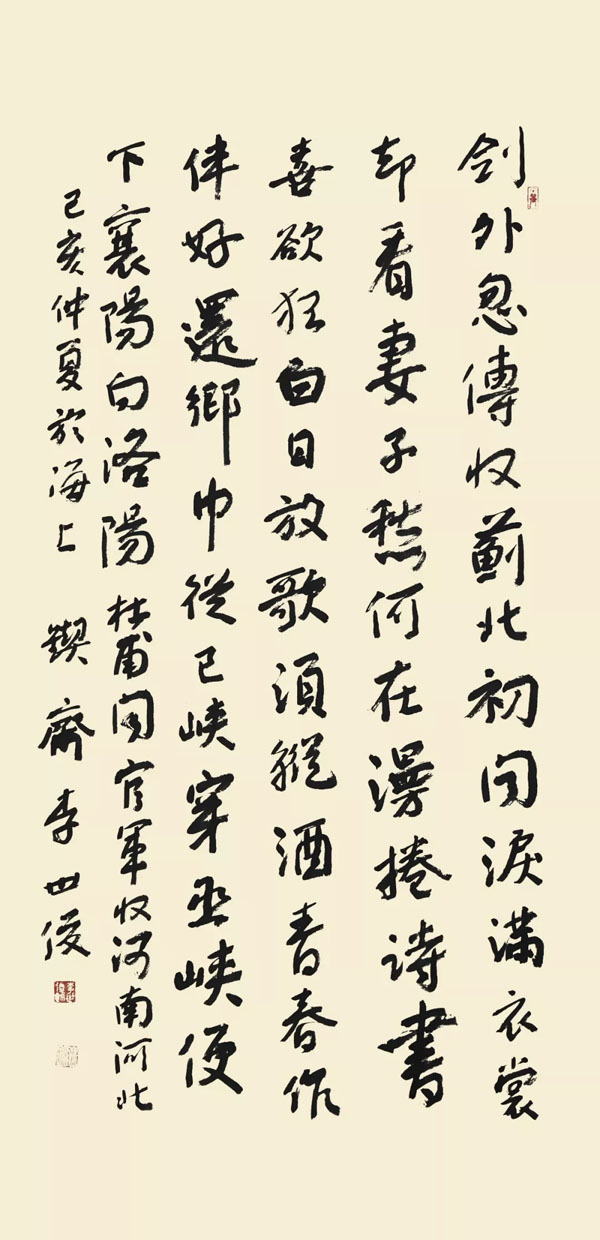 剑外忽傳收薊北初闻淚滿衣裳
却看妻子愁何在漫捲詩書
喜欲狂白日放歌須縱酒青春作
伴好還鄉即從巴峽穿巫峽便
下襄陽向洛陽 杜甫闻官軍收河南河北
己亥仲夏於海上 鍥齋李世俊